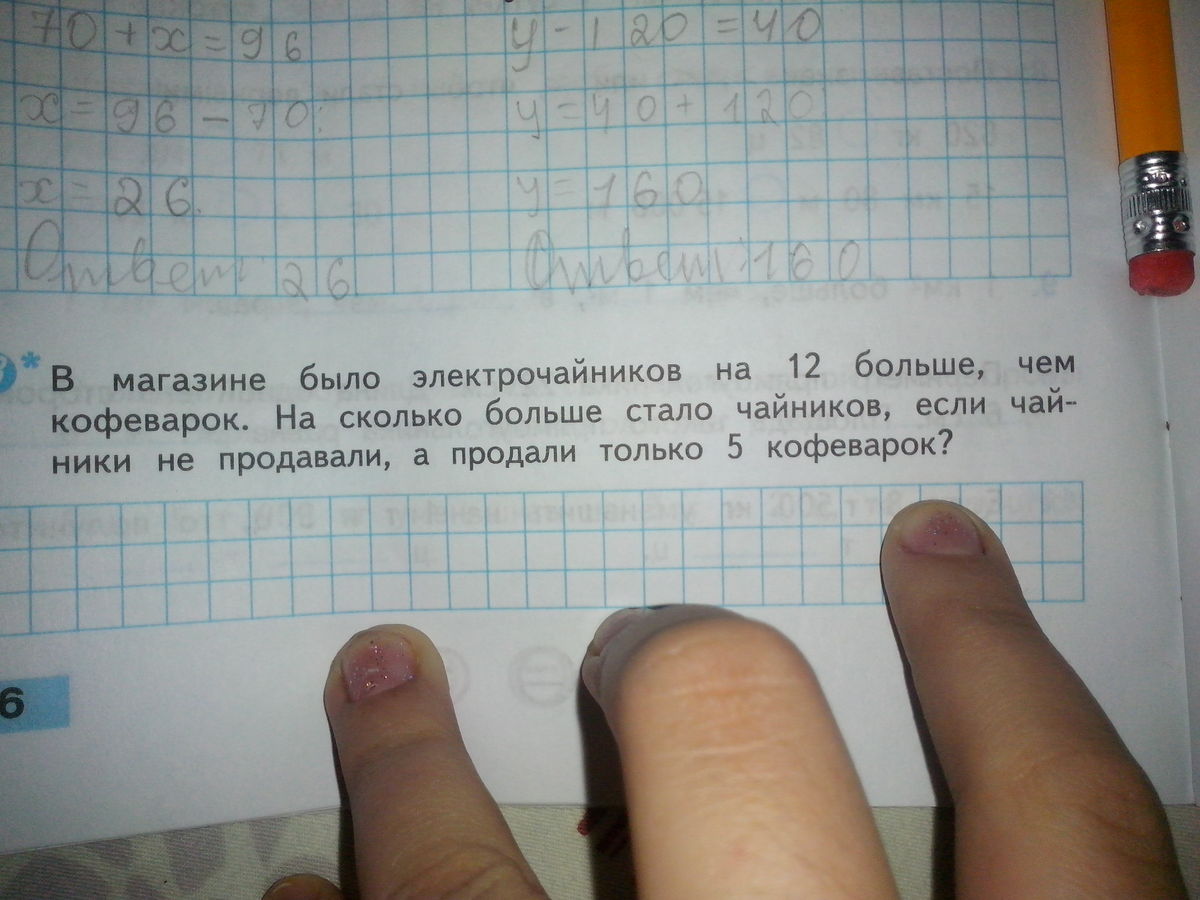 70 + x = 96 y - 120 = 40
x = 96 - 70 y = 40 + 120
x = 26. y = 160
Ответ: 26 Ответ: 160
* В магазине было электрочайников на 12 больше, чем
кофеварок. На сколько больше стало чайников, если чай-
ники не продавали, а продали только 5 кофеварок?
6